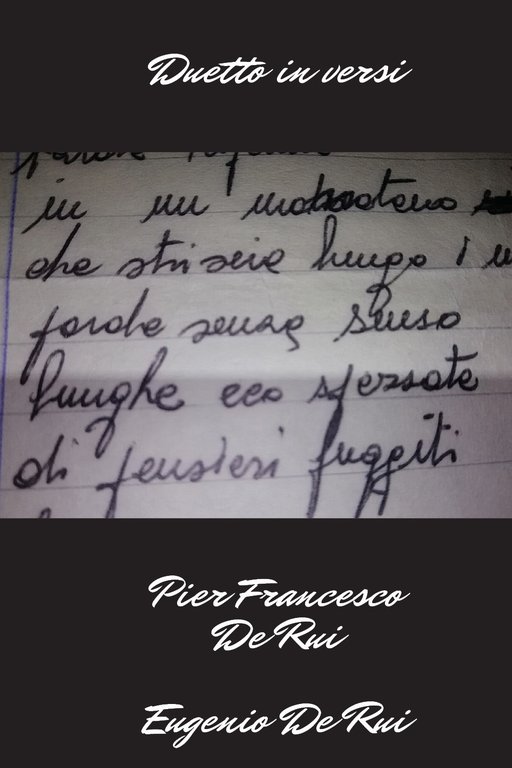 Duetto in versi
parole
in un
che striscia lungo i
parole senza senso
lunghe eco spezzate
di pensieri fuggiti
Pier Francesco
De Rui
Eugenio De Rui